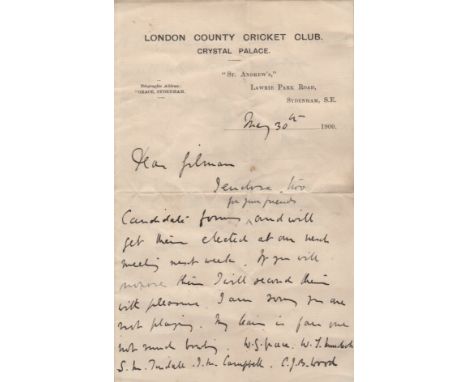 LONDON COUNTY CRICKET CLUB.
CRYSTAL PALACE.
"St. Andrew's,"
Telegraphic Address:
"GRACE, SYDENHAM."
Lawrie Park Road,
Sydenham, S.E.
May 30th 1900.
Dear Gilman
I enclose two
for your friends
Candidate forms and will
get them elected at our next
meeting next week. If you will
propose them I will second them
with pleasure. I am sorry you are
not playing. My team is fair one
not much bowling. W.G. Grace. W.L. Murdoch
S.M. Tindall. I.M. Campbell. C.J.B. Wood